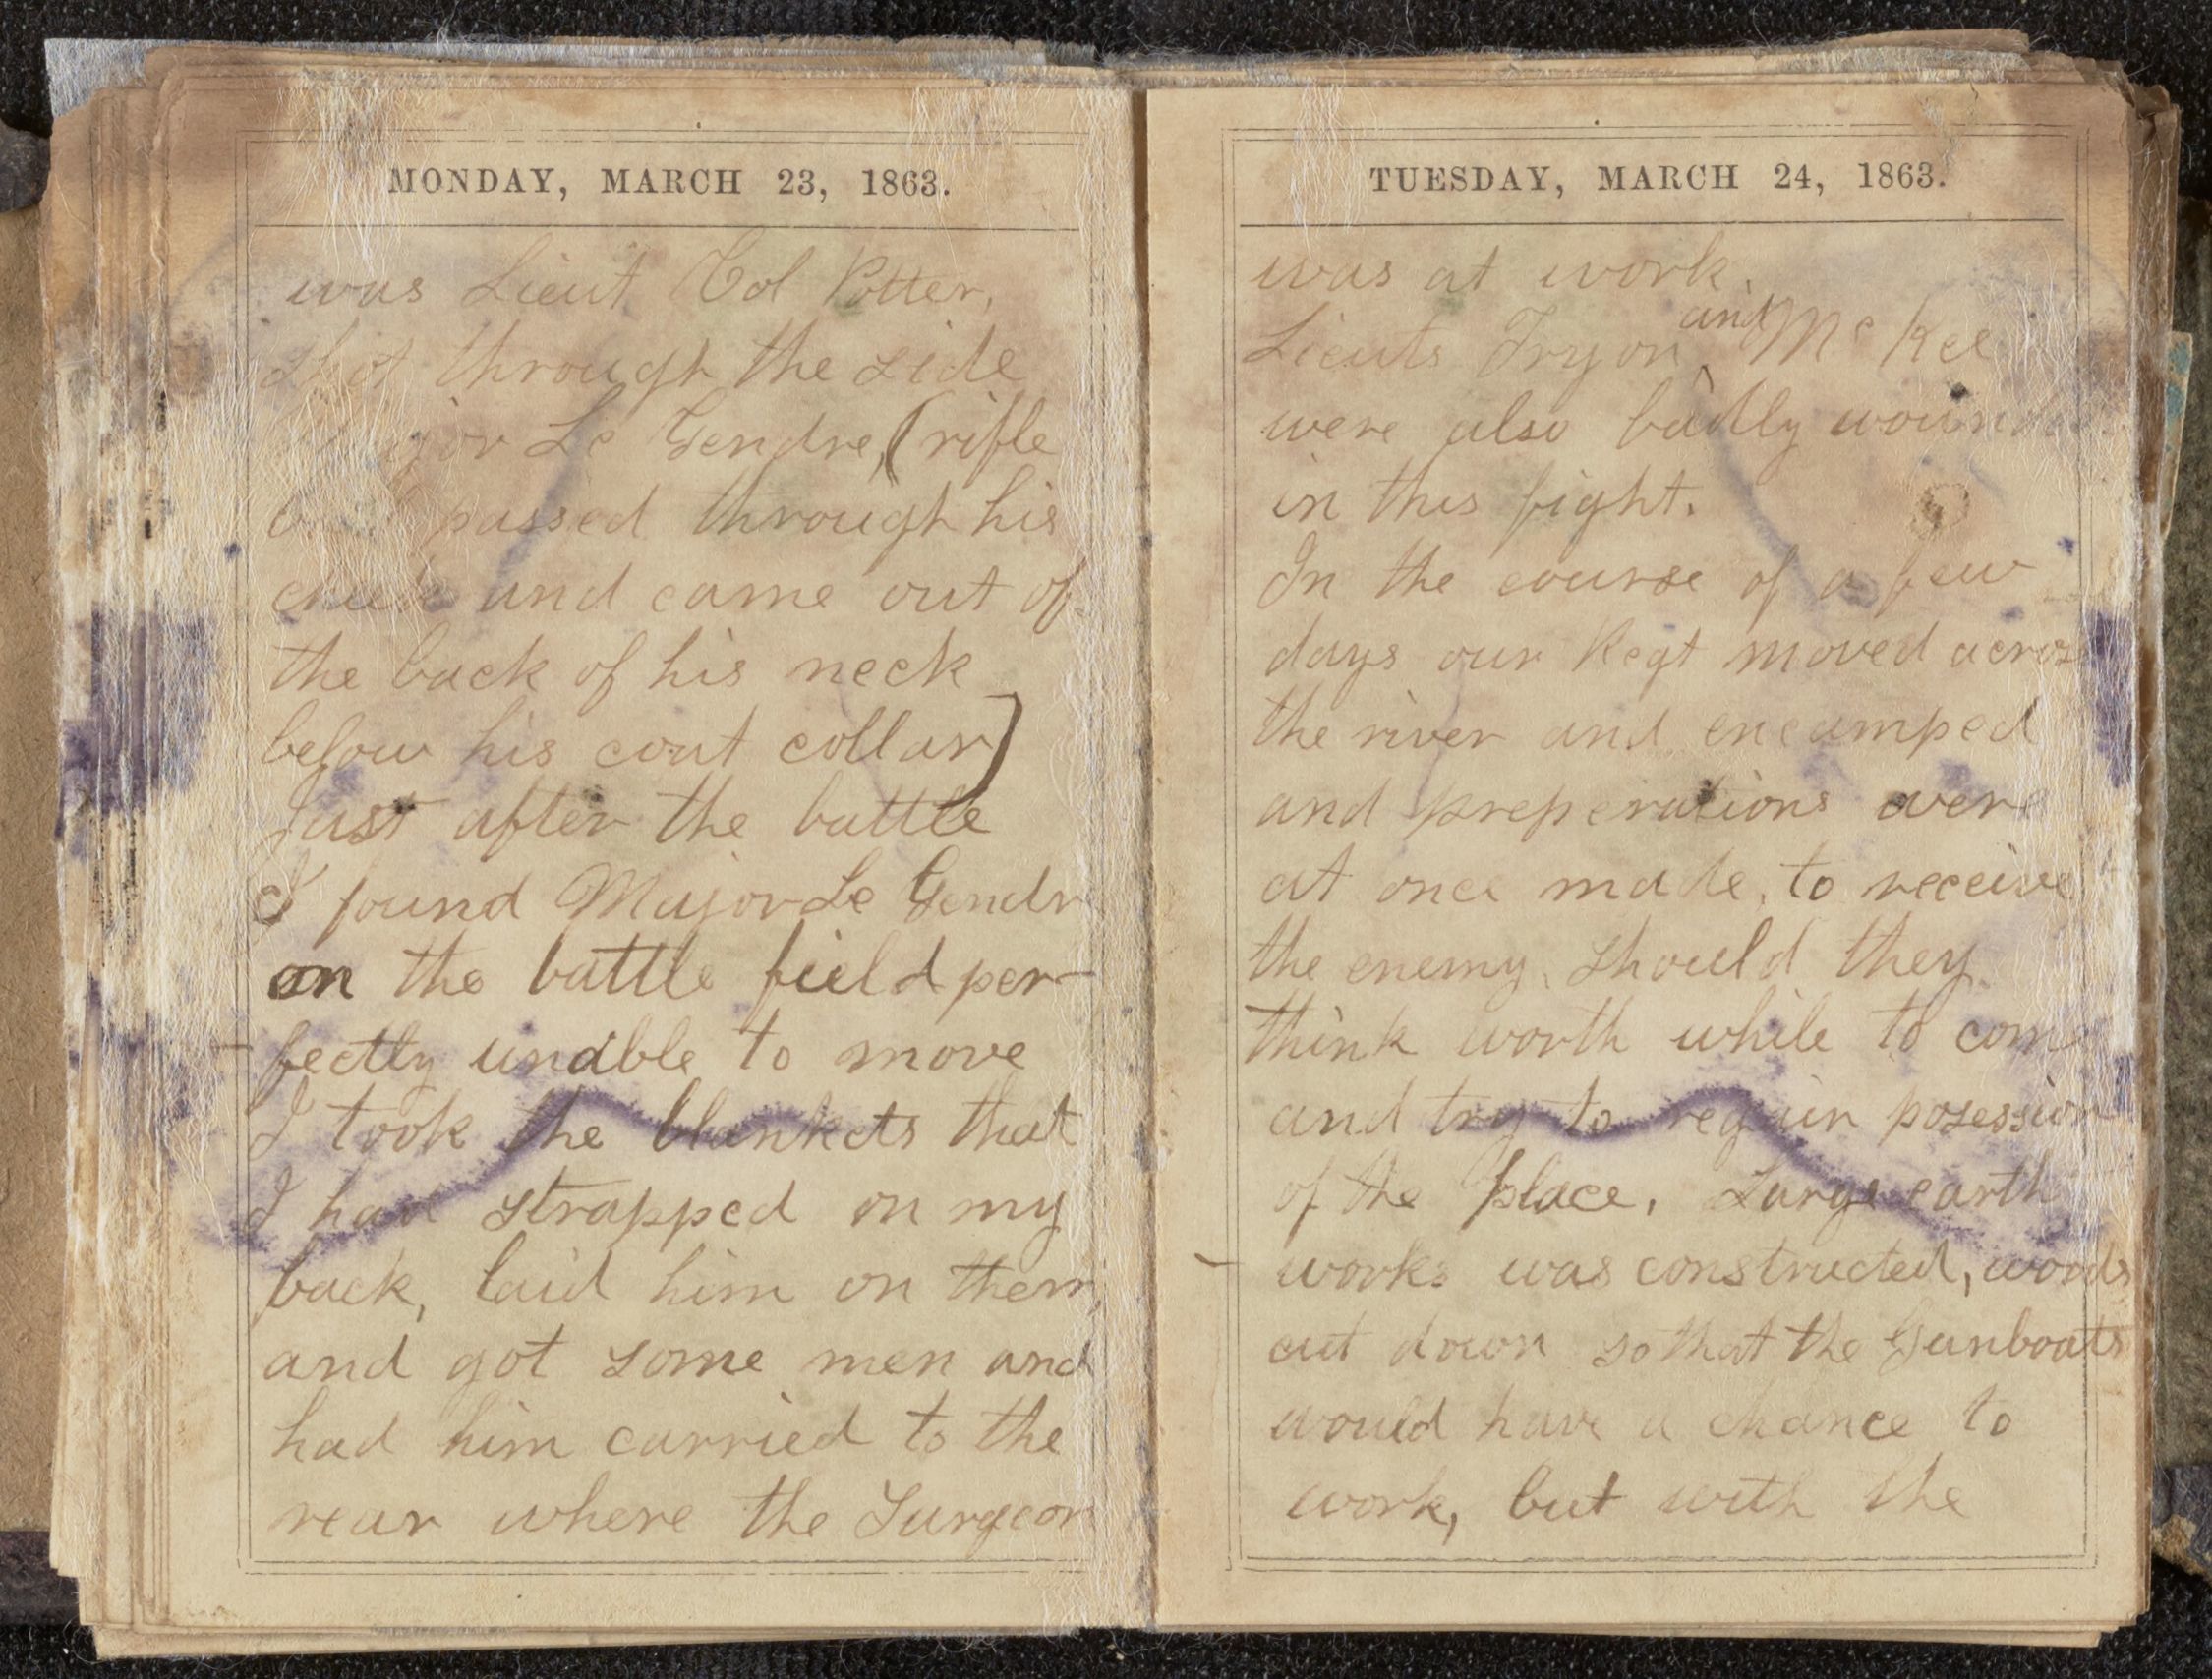 MONDAY, MARCH 23, 1863.
was Lieut Col Potter,
shot through the side
Major Le Gendre, (rifle
ball passed through his
cheek and came out of
the back of his neck
below his coat collar)
Just after the battle
I found Major Le Gendr
on the battle field per-
fectly unable to move
I took the blankets that
I had strapped on my
back, laid him on them,
and got some men and
had him carried to the
rear where the Surgeon
TUESDAY, MARCH 24, 1863.
was at work.
Lieuts Tryon and McKee
were also badly wounded
in this fight.
In the course of a few
days our Regt moved across
the river and encamped
and preperations were
at once made, to receive
the enemy, should they
think worth while to come
and try to regain posession
of the place, Large earth
works was constructed, woods
cut down so that the Gunboats
would have a chance to
work, but with the